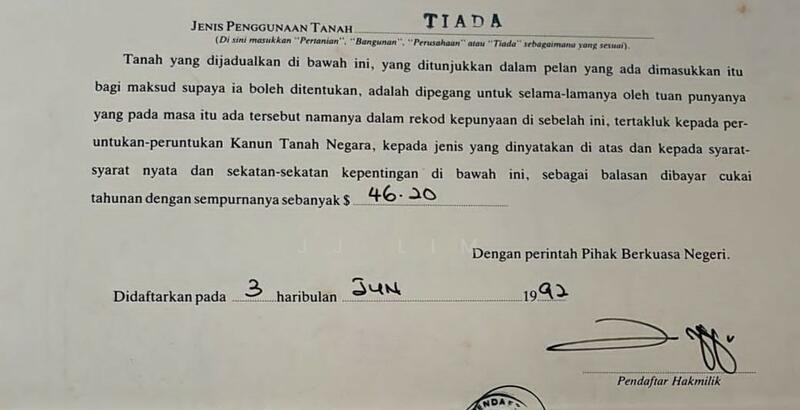 JENIS PENGGUNAAN TANAH TIADA
(Di sini masukkan "Pertanian", "Bangunan", "Perusahaan" atau "Tiada" sebagaimana yang sesuai).
Tanah yang dijadualkan di bawah ini, yang ditunjukkan dalam pelan yang ada dimasukkan itu
bagi maksud supaya ia boleh ditentukan, adalah dipegang untuk selama-lamanya oleh tuan punyanya
yang pada masa itu ada tersebut namanya dalam rekod kepunyaan di sebelah ini, tertakluk kepada per-
untukan-peruntukan Kanun Tanah Negara, kepada jenis yang dinyatakan di atas dan kepada syarat-
syarat nyata dan sekatan-sekatan kepentingan di bawah ini, sebagai balasan dibayar cukai
tahunan dengan sempurnanya sebanyak $ 46.20
JJ LIM
Dengan perintah Pihak Berkuasa Negeri.
Didaftarkan pada 3 haribulan JUN 1992
Pendaftar Hakmilik